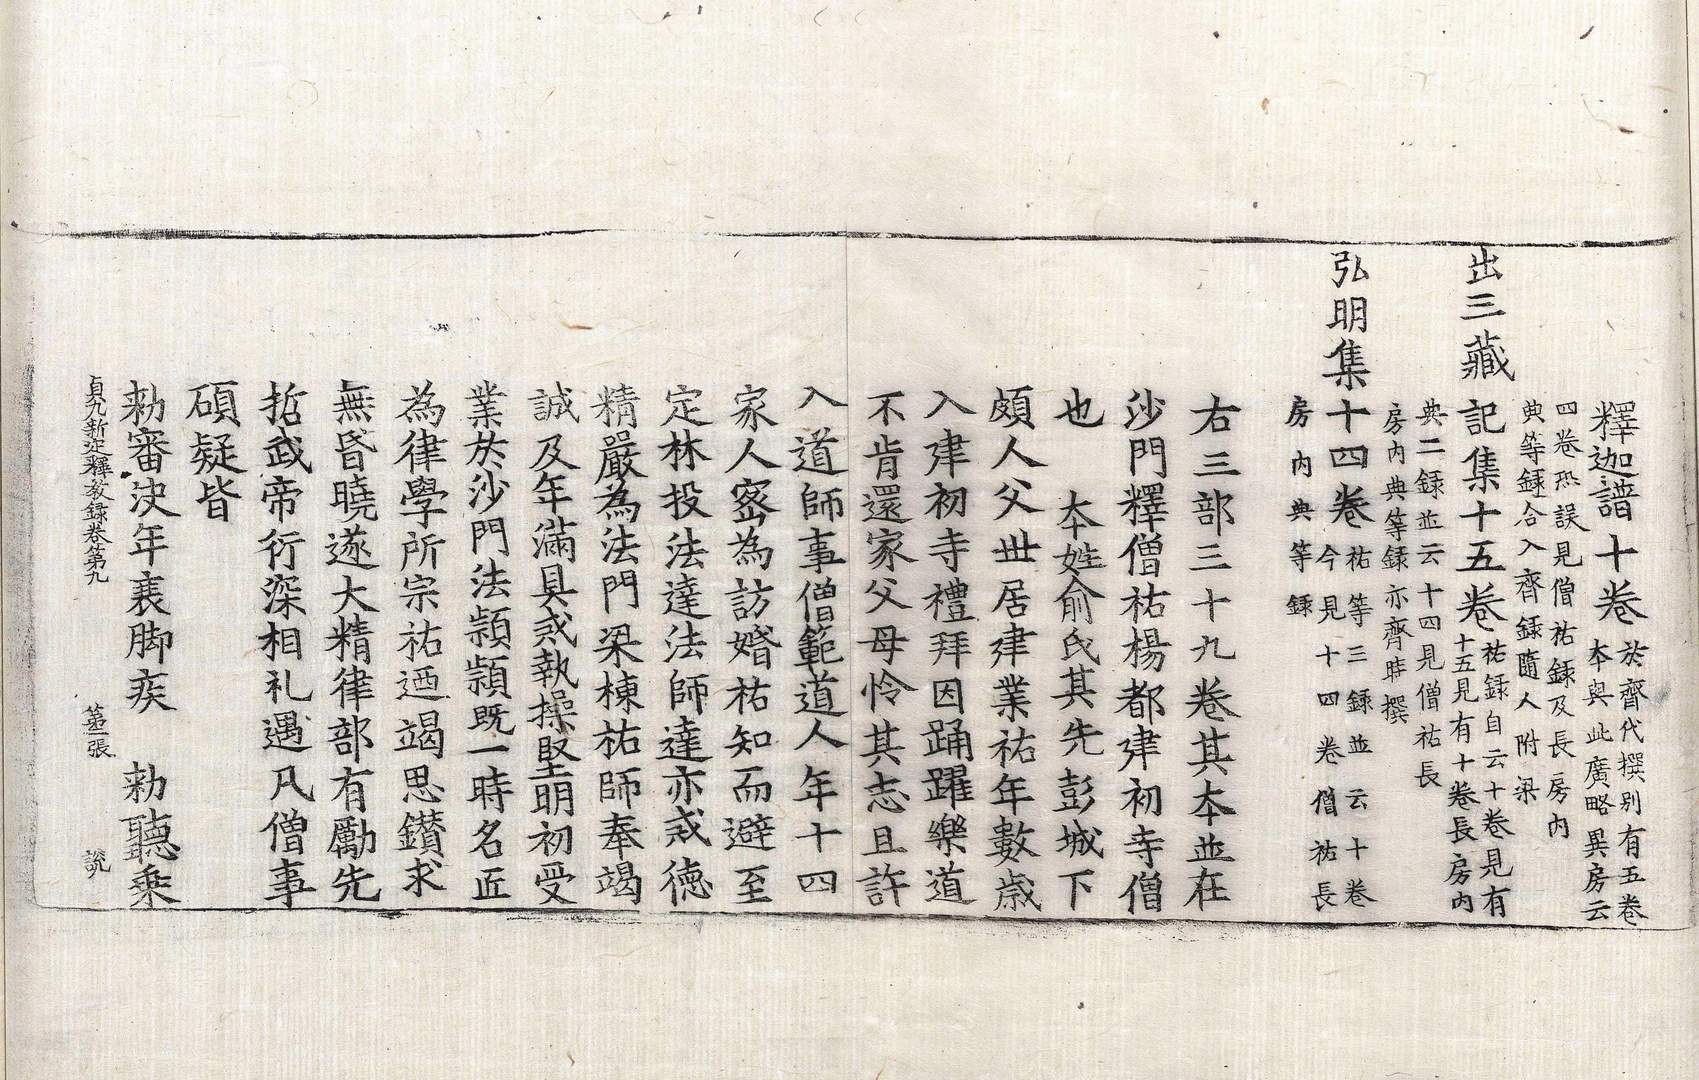 釋迦譜十卷 於齊代撰別有五卷
本與此廣略異房云
四卷恐誤見僧祐錄及長房內
典等錄合入齊錄隨人附梁
出三藏記集十五卷 祐錄自云十卷見有
十五見有十卷長房內
典二録並云十四見僧祐長
房内典等録亦齊時撰
弘明集十四卷 祐等三録並云十卷
今見十四卷僧祐長
房内典等録
右三部三十九卷其本並在
沙門釋僧祐楊都建初寺僧
也 本姓俞氏其先彭城下
頗人父世居建業祐年數歲
入建初寺禮拜因踊躍樂道
不肯還家父母怜其志且許
入道師事僧範道人年十四
家人密為訪婚祐知而避至
定林投法達法師達亦戒德
精嚴為法門梁棟祐師奉竭
誠及年滿具戒執操堅明初受
業於沙門法頴頴既一時名匠
為律學所宗祐迺竭思鑚求
無昏曉遂大精律部有勵先
哲武帝衍深相礼遇凡僧事
碩疑皆
勑審決年衰脚疾 勑聽乘
貞九新定釋教錄卷第九 張